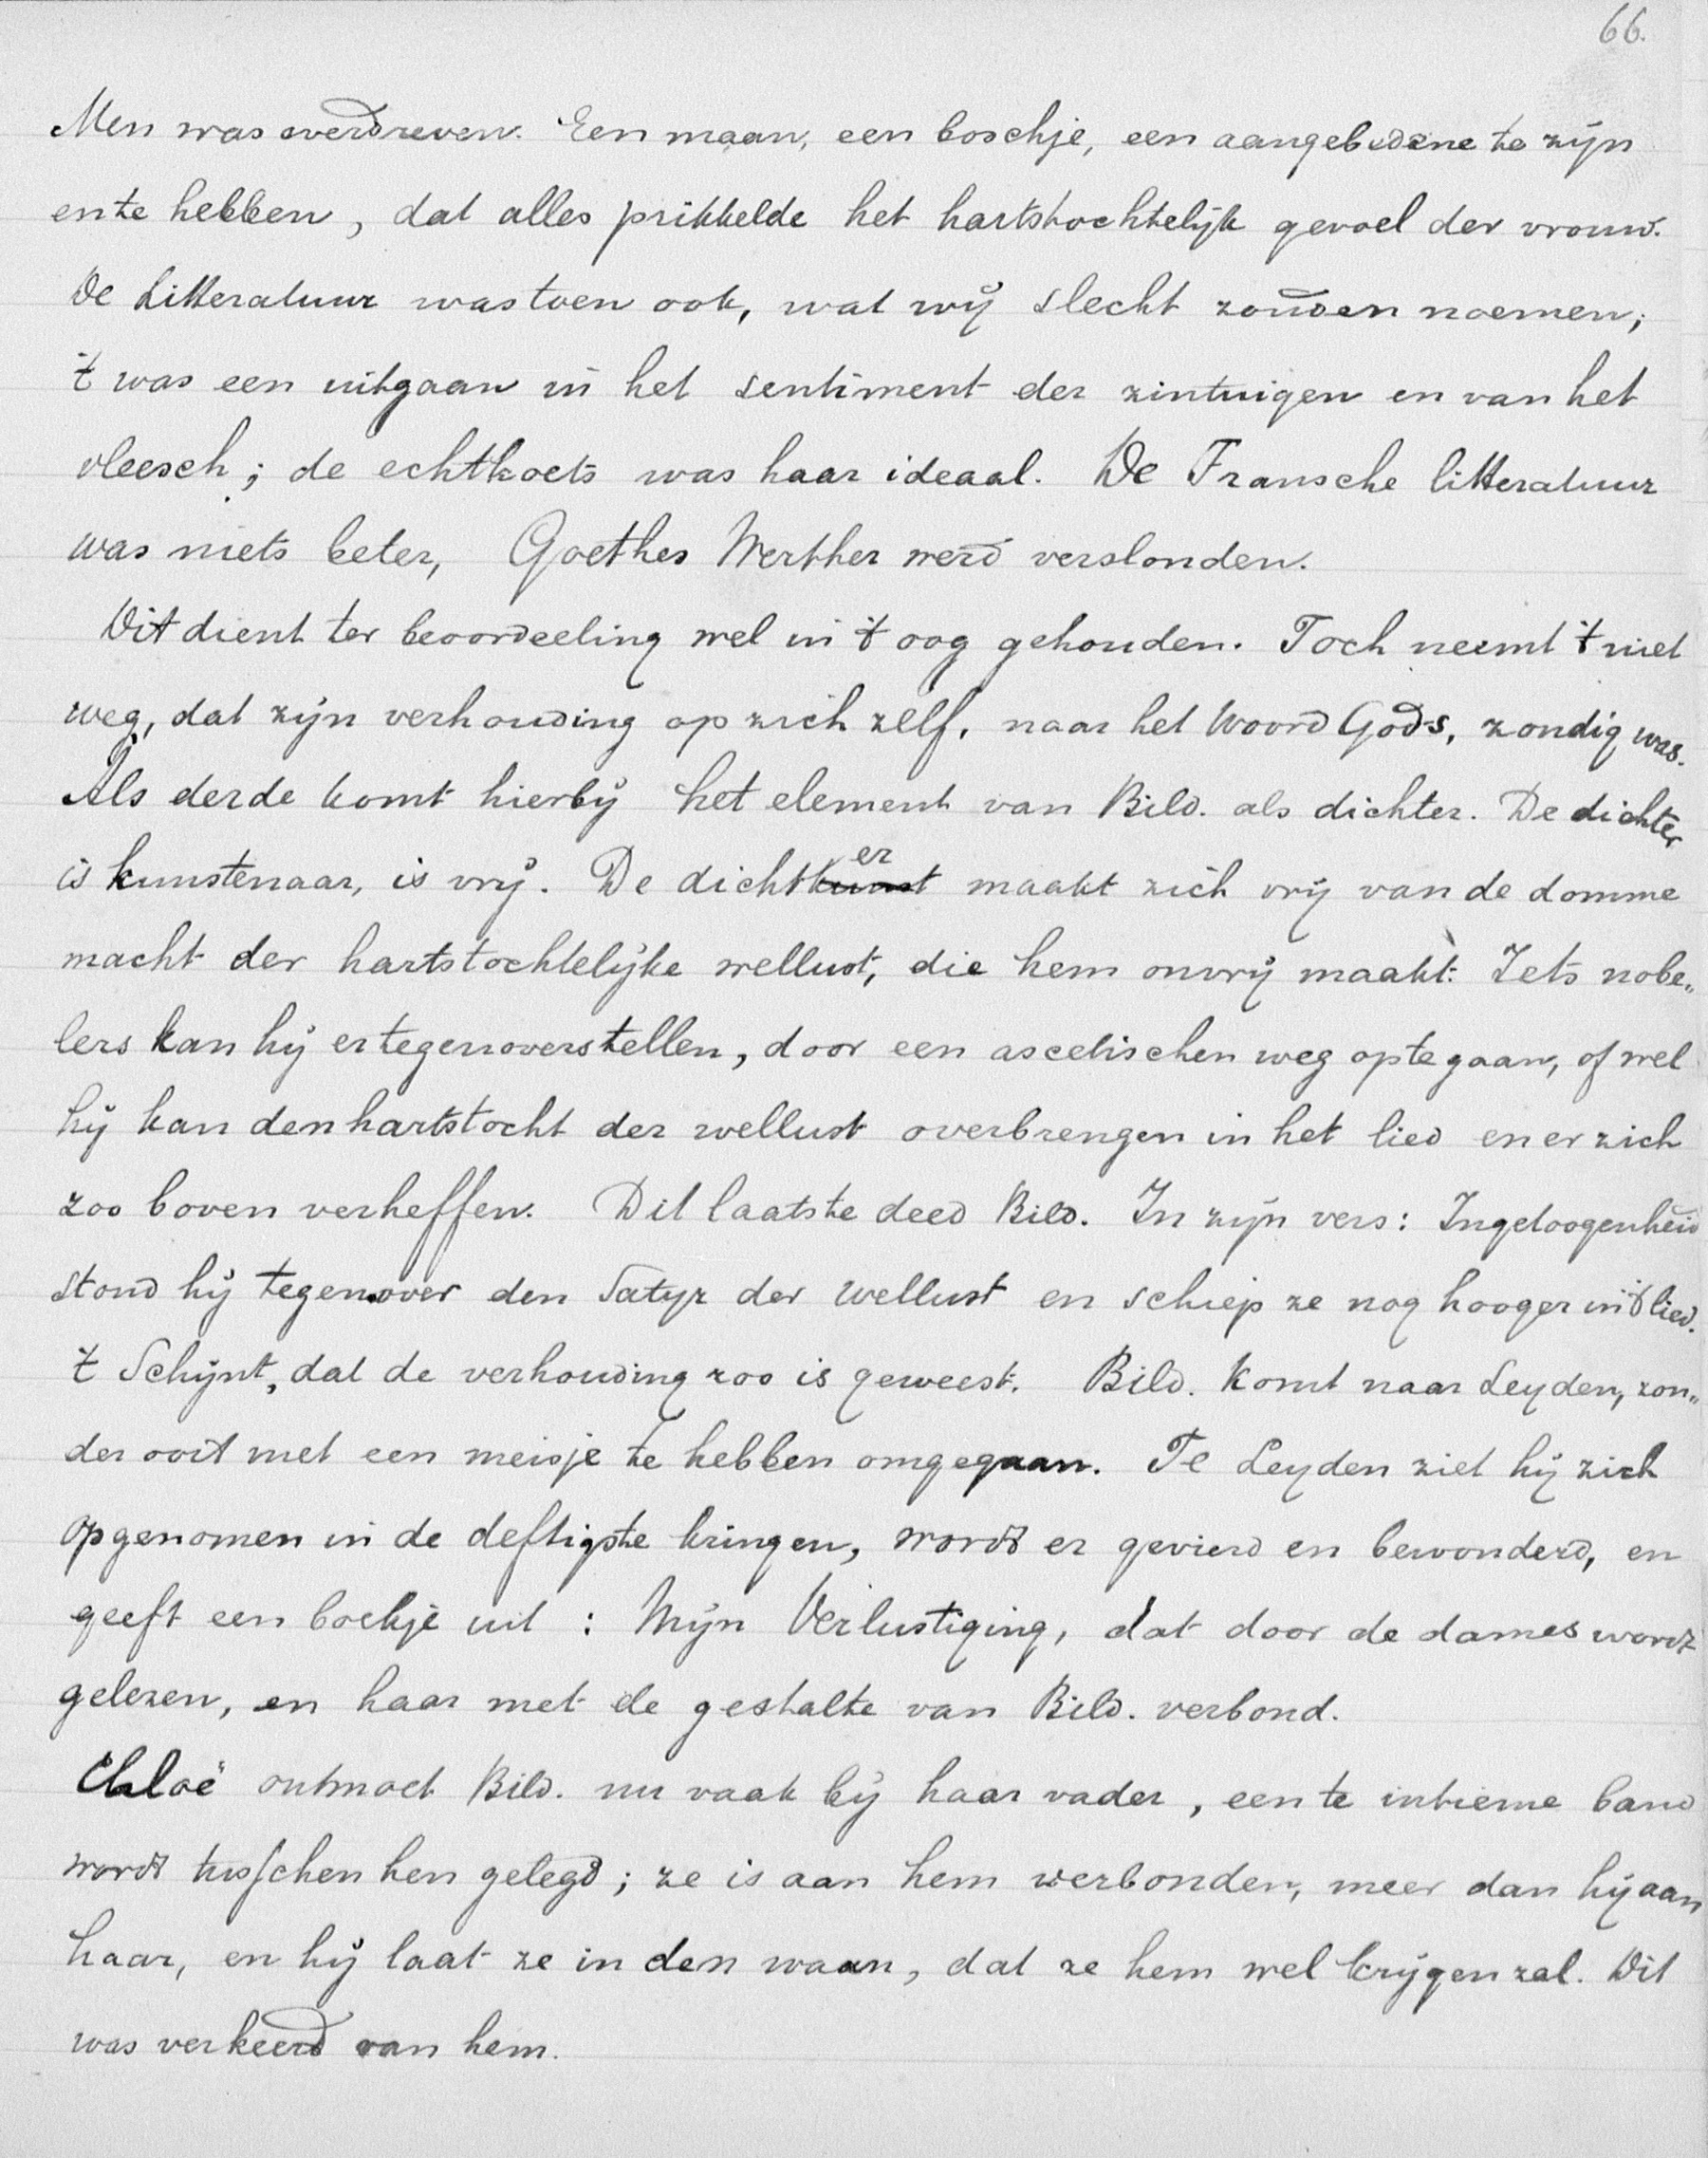 66.
Men was overdreven. Een maan, een boschje, een aangebedene te zijn
en te hebben, dat alles prikkelde het hartstochtelijk gevoel der vrouw.
De Litteratuur was toen ook, wat wij slecht zouden noemen;
't was een uitgaan in het sentiment der zintuigen en van het
vleesch; de echtkoets was haar ideaal. De Fransche litteratuur
was niets beter, Goethes Werther werd verslonden.
Dit dient ter beoordeeling wel in 't oog gehouden. Toch neemt 't niet
weg, dat zijn verhouding op zich zelf, naar het Woord Gods, zondig was.
Als derde komt hierbij het element van Bild. als dichter. De dichter
is kunstenaar, is vrij. De dichtkunst er maakt zich vrij van de domme
macht der hartstochtelijke wellust, die hem onvrij maakt. Iets nobe„
lers kan hij er tegenoverstellen, door een ascetischen weg op te gaan, of wel
hij kan den hartstocht der wellust overbrengen in het lied en er zich
zoo boven verheffen. Dit laatste deed Bild. In zijn vers: Ingetoogenheid
stond hij tegenover den Satyr der wellust en schiep ze nog hooger in 't lied.
't Schijnt, dat de verhouding zoo is geweest. Bild. komt naar Leyden, zon„
der ooit met een meisje te hebben omgegaan. Te Leyden ziet hij zich
opgenomen in de deftigste kringen, wordt er gevierd en bewonderd, en
geeft een boekje uit : Mijn Verlustiging, dat door de dames wordt
gelezen, en haar met de gestalte van Bild. verbond.
Chloë ontmoet Bild. nu vaak bij haar vader, een te intieme band
wordt tusschen hen gelegd; ze is aan hem verbonden, meer dan hij aan
haar, en hij laat ze in den waan, dat ze hem wel krijgen zal. Dit
was verkeerd van hem.